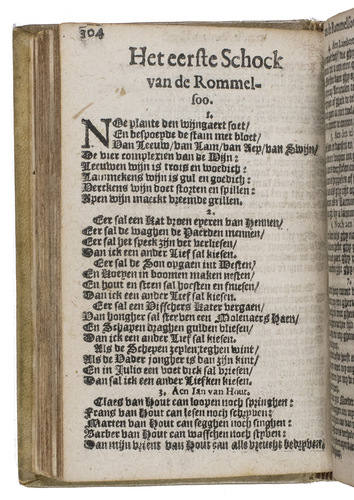 304
Het eerste Schock
van de Rommel-
soo.
1.
NOe plante den wijngaert soet/
En bespoeyde de stam met bloet/
Van Leeuw/ van Lam/ van Aep/ van Swijn/
De vier complexien van de Wijn:
Leeuwen wijn is trots en woedich:
Lammekens wijn is gul en goedich:
Verckens wijn doet storten en spillen:
Apen wijn maeckt vreemde grillen.
2.
Eer sal een Kat broen eyeren van Hennen/
Eer sal de waghen de Paerden mennen/
Eer sal het speck zijn vet verliesen/
Dan ick een ander Lief sal kiesen.
Eer sal de Son opgaen int Westen/
En Koeyen in boomen maken nesten/
En hout en steen sal hoesten en sniesen/
Dan ick een ander Lief sal kiesen.
Eer sal een Visschers Kater vergaen/
Van hongher sal sterven een Molenaers Haen/
En Schapen draghen gulden vliesen/
Dan ick een ander Lief sal kiesen.
Als de Schepen zeylen teghen wint/
Als de Vader jongher is dan zijn kint/
En in Julio een voet dick sal vriesen/
Dan sal ick een ander Liefken kiesen.
3. Aen Ian van Hout.
Claes van Hout can loopen noch springhen:
Frans van Hout can lesen noch schryven:
Marten van Hout can segghen noch singhen:
Barber van Hout can wasschen noch styven:
Dan mijn vrient van Hout can alle vreucht bedryven.